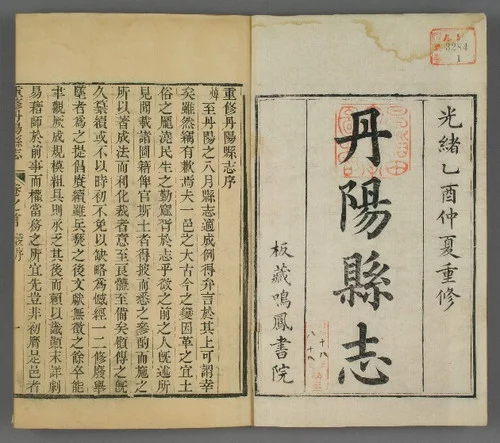 光緒乙酉仲夏重修
丹陽縣志
板藏鳴鳳書院
3284
1
重修丹陽縣志序
至丹陽之八月縣志適成例得弁言於其上可謂幸
矣雖然竊有歉焉夫一邑之大古今之變因革之宜土
俗之厖澆民生之勤窳胥於志乎徵之前之人旣述所
見聞載諸圖籍俾官斯土者得披而悉之參酌而施之
所以著成法而利化裁者意至良體至備矣顧傳之旣
久續或不以時初不免以缺略為憾經一二修廢舉
墜者為之提倡賡續雖兵燹之後文獻無徵之餘卒能
聿觀厥成規模粗具則承乏其後而賴以識顛末詳利
易藉師於前事而權當務之所宜先豈非初膺是邑者
重修丹陽縣志 卷之首 序 一